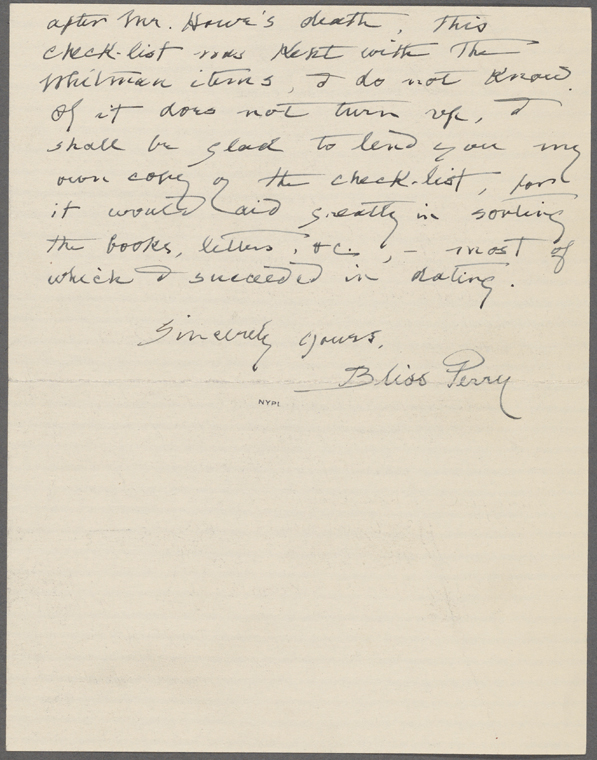 after Mr. Howe's death, this
check-list was kept with the
Whitman items, I do not know.
If it does not turn up, I
shall be glad to lend you my
own copy of the check-list, for
it would aid greatly in sorting
the books, letters, &c., - most of
which I succeeded in dating.
Sincerely yours,
Bliss Perry
NYPL